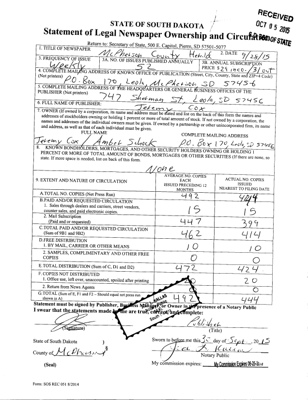 RECEIVED
OCT 05 2015
STATE OF SOUTH DAKOTA
Statement of Legal Newspaper Ownership and
Return to: Secretary of State, 500 E. Capitol, Pierre, SD 57501-5077
1. TITLE OF NEWSPAPER McPherson County Herald 2. DATE 9/28/15
3. FREQUENCY OF ISSUE Weekly 3A. NO. OF ISSUES PUBLISHED ANNUALLY 52 3B. ANNUAL SUBSCRIPTION PRICE
4. COMPLETE MAILING ADDRESS OF KNOWN OFFICE OF PUBLICATION (Street, City, County, State and
(Not Printers) P.O. Box 170 Leola McPherson SD 57456
5. COMPLETE MAILING ADDRESS OF THE HEADQUARTERS OR GENERAL BUSINESS OFFICES OF THE
PUBLISHER (Not printers) Sherman St. Leola, SD 57456
6. FULL NAME OF PUBLISHER Jeremy Cox
7. OWNER (If owned by a corporation, its name and address must be stated and also on the back of this form the names and
addresses of stockholders owning or holding 1 percent or more of total amount of stock. If not owned by a corporation, the
names and addresses of the individual owners must be given. If owned by a partnership or other unincorporated firm, its name
and address, as well as that of each individual must be given.
FULL NAME COMPLETE MAILING ADDRESS
Jeremy Cox P.O. Box 170 Leola, SD 57456
8. KNOWN BONDHOLDERS, MORTGAGEES, AND OTHER SECURITY HOLDERS OWNING OR HOLDING 1
PERCENT OR MORE OF TOTAL AMOUNT OF BONDS, MORTGAGES OR OTHER SECURITIES (If there are none, so
state. If more space is needed, list on back of this form.
None
9. EXTENT AND NATURE OF CIRCULATION AVERAGE NO. COPIES EACH ISSUED PRECEDING 12 MONTHS ACTUAL NO. COPIES ISSUED NEAREST TO FILING DATE
A. TOTAL NO. COPIES (Net Press Run) 492 444
B. PAID AND/OR REQUESTED CIRCULATION
1. Sales through dealers and carriers, street vendors,
counter sales, and paid electronic copies. 15 15
2. Mail Subscription
(Paid and or requested) 447 399
C. TOTAL PAID AND/OR REQUESTED CIRCULATION
(Sum of 9B1 and 9B2) 462 414
D. FREE DISTRIBUTION
1. BY MAIL, CARRIER OR OTHER MEANS 10 10
2. SAMPLES, COMPLIMENTARY AND OTHER FREE
COPIES 0 0
E. TOTAL DISTRIBUTION (Sum of C, D1 and D2) 472 424
F. COPIES NOT DISTRIBUTED
1. Office use, left over, unaccounted, spoiled after printing 20 20
2. Return from News Agents 0 0
G. TOTAL (Sum of E, F1 and F2 - Should equal net press run
shown in A) 492 444
Statement must be signed by Publisher, Business Manager, or Owner in the presence of a Notary Public
I swear that the statements made by me are true, correct, and complete:
Publisher
(Title)
State of South Dakota
County of McPherson
Sworn to before me this day of Sept. 2015
Notary Public
My commission expires: My Commission Expires
Form: SOS REC 051 8/2014